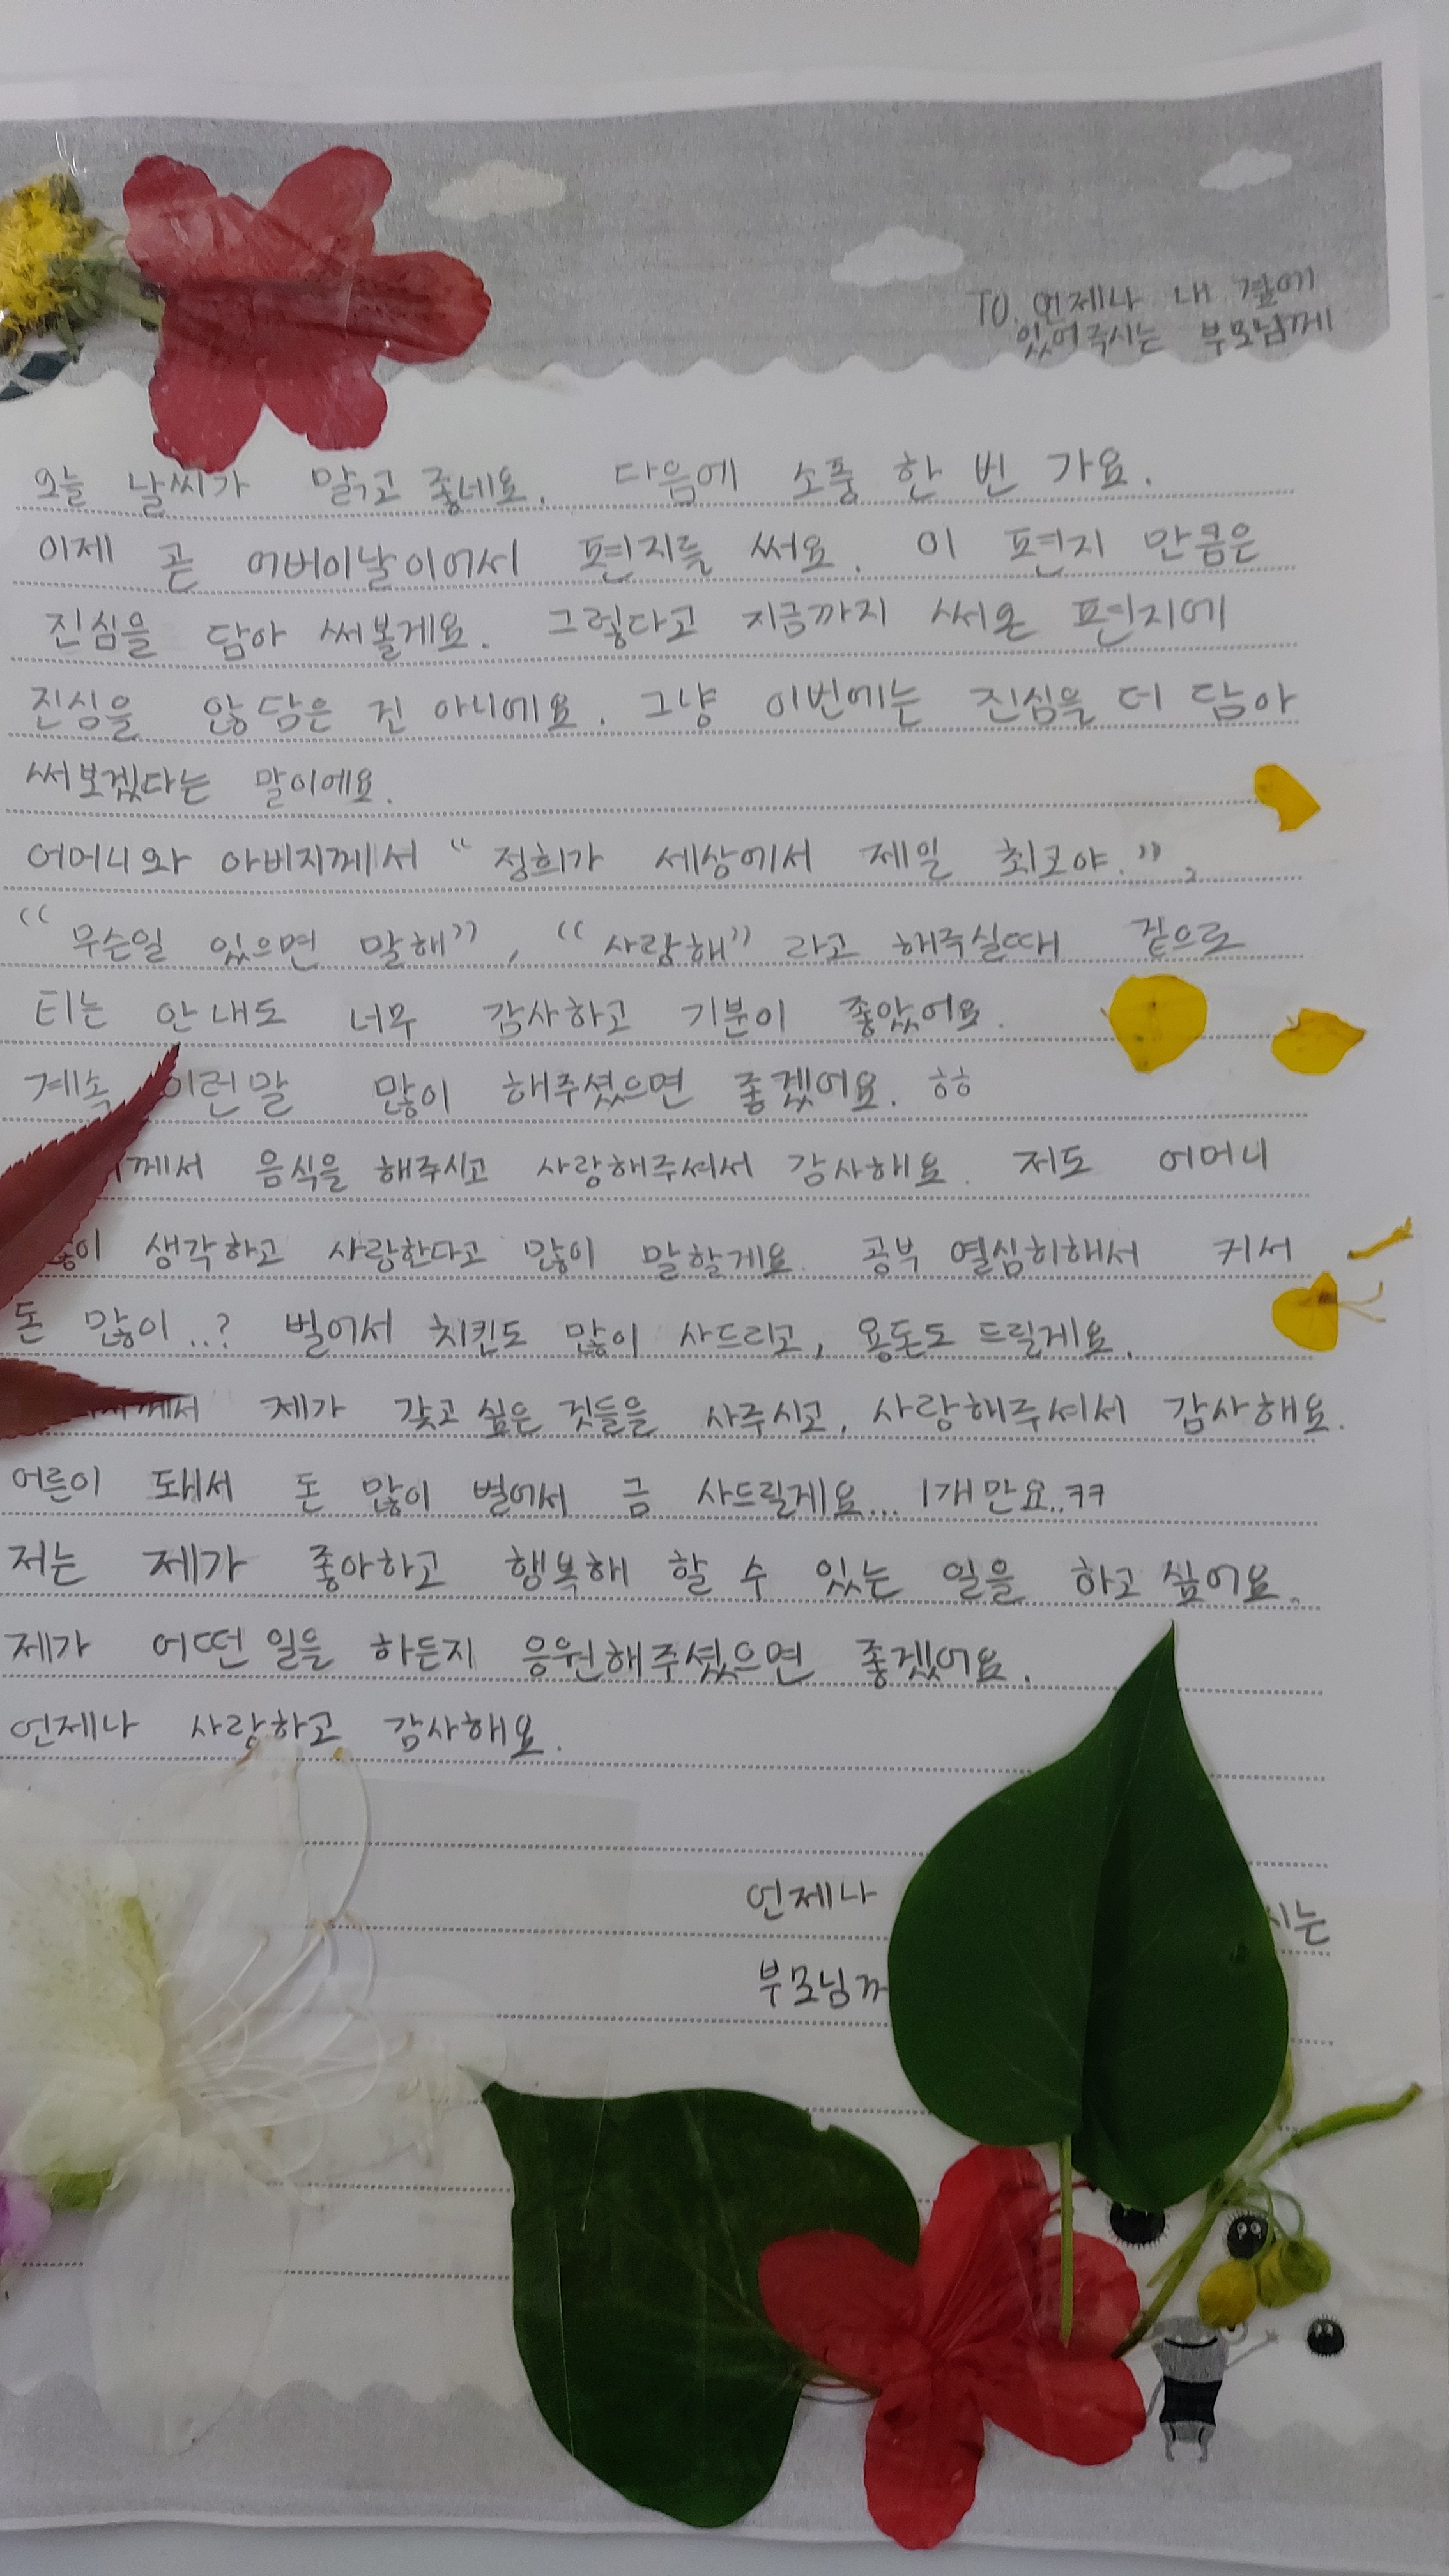 TO. 언제나 내 곁에
있어주시는 부모님께
오늘 날씨가 맑고 좋네요. 다음에 소풍 한 번 가요.
이제 곧 어버이날이어서 편지를 써요. 이 편지 만큼은
진심을 담아 써볼게요. 그렇다고 지금까지 써온 편지에
진심을 않담은 건 아니에요. 그냥 이번에는 진심을 더 담아
써보겠다는 말이에요.
어머니와 아버지께서 “정희가 세상에서 제일 최고야.”,
“무슨일 있으면 말해”, “사랑해” 라고 해주실때 겉으로
티는 안내도 너무 감사하고 기분이 좋았어요.
계속 이런말 많이 해주셨으면 좋겠어요. ㅎㅎ
께서 음식을 해주시고 사랑해주셔서 감사해요. 저도 어머니
생각하고 사랑한다고 많이 말할게요. 공부 열심히해서 커서
돈 많이..? 벌어서 치킨도 많이 사드리고, 용돈도 드릴게요.
께서 제가 갖고 싶은 것들을 사주시고, 사랑해주셔서 감사해요.
어른이 돼서 돈 많이 벌어서 금 사드릴게요... 1개만요..ㅋㅋ
저는 제가 좋아하고 행복해 할 수 있는 일을 하고 싶어요.
제가 어떤 일을 하든지 응원해주셨으면 좋겠어요.
언제나 사랑하고 감사해요.
언제나
부모님